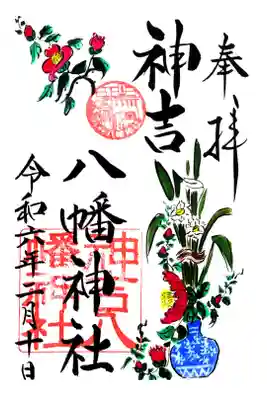 奉拝
神吉
八幡神社
令和六年二月十日
神吉八
幡神社